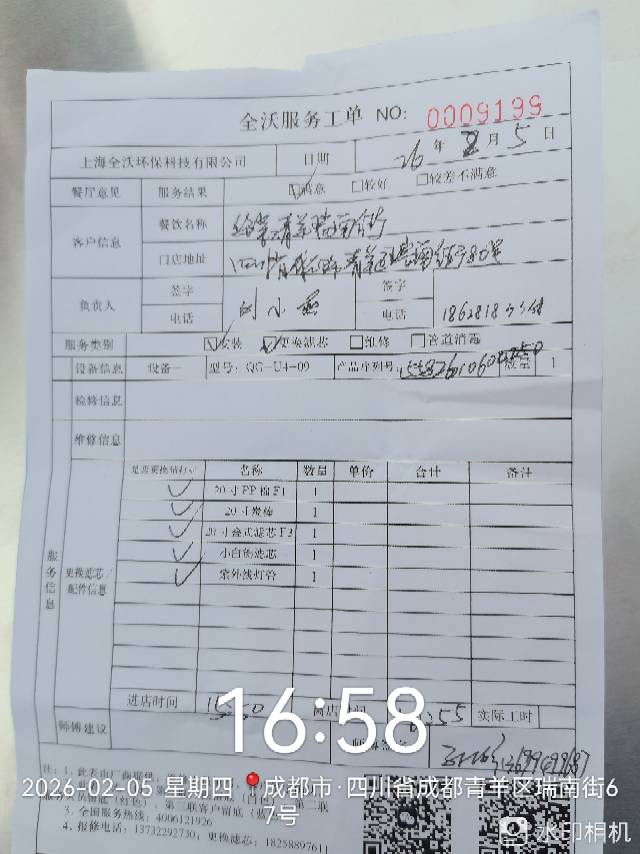 全沃服务工单 NO: 0009199
上海全沃环保科技有限公司 日期 26年2月5日
餐厅意见 服务结果 ☑满意 □较好 □较差不满意
客户信息 餐饮名称 青羊瑞南街
门店地址 四川省成都市青羊区瑞南街
负责人 签字 刘小燕 签字
电话 电话
服务类别 ☑安装 ☑更换滤芯 □维修 □管道消毒
设备信息 设备一 型号:QG-U4-09 产品序列号: 数量 1
检修信息
维修信息
服务信息
更换滤芯/配件信息
是否更换请打√ 名称 数量 单价 合计 备注
✓ 20寸PP棉F1 1
✓ 20寸炭棒 1
✓ 20寸叠式滤芯F3 1
✓ 小白的滤芯 1
✓ 紫外线灯管 1
进店时间 实际工时
师傅建议
16:58
2026-02-05 星期四 📍成都市·四川省成都青羊区瑞南街67号
3、全国服务热线:4006121926
4、报修电话:13732292730;更换滤芯:18258897611
水印相机